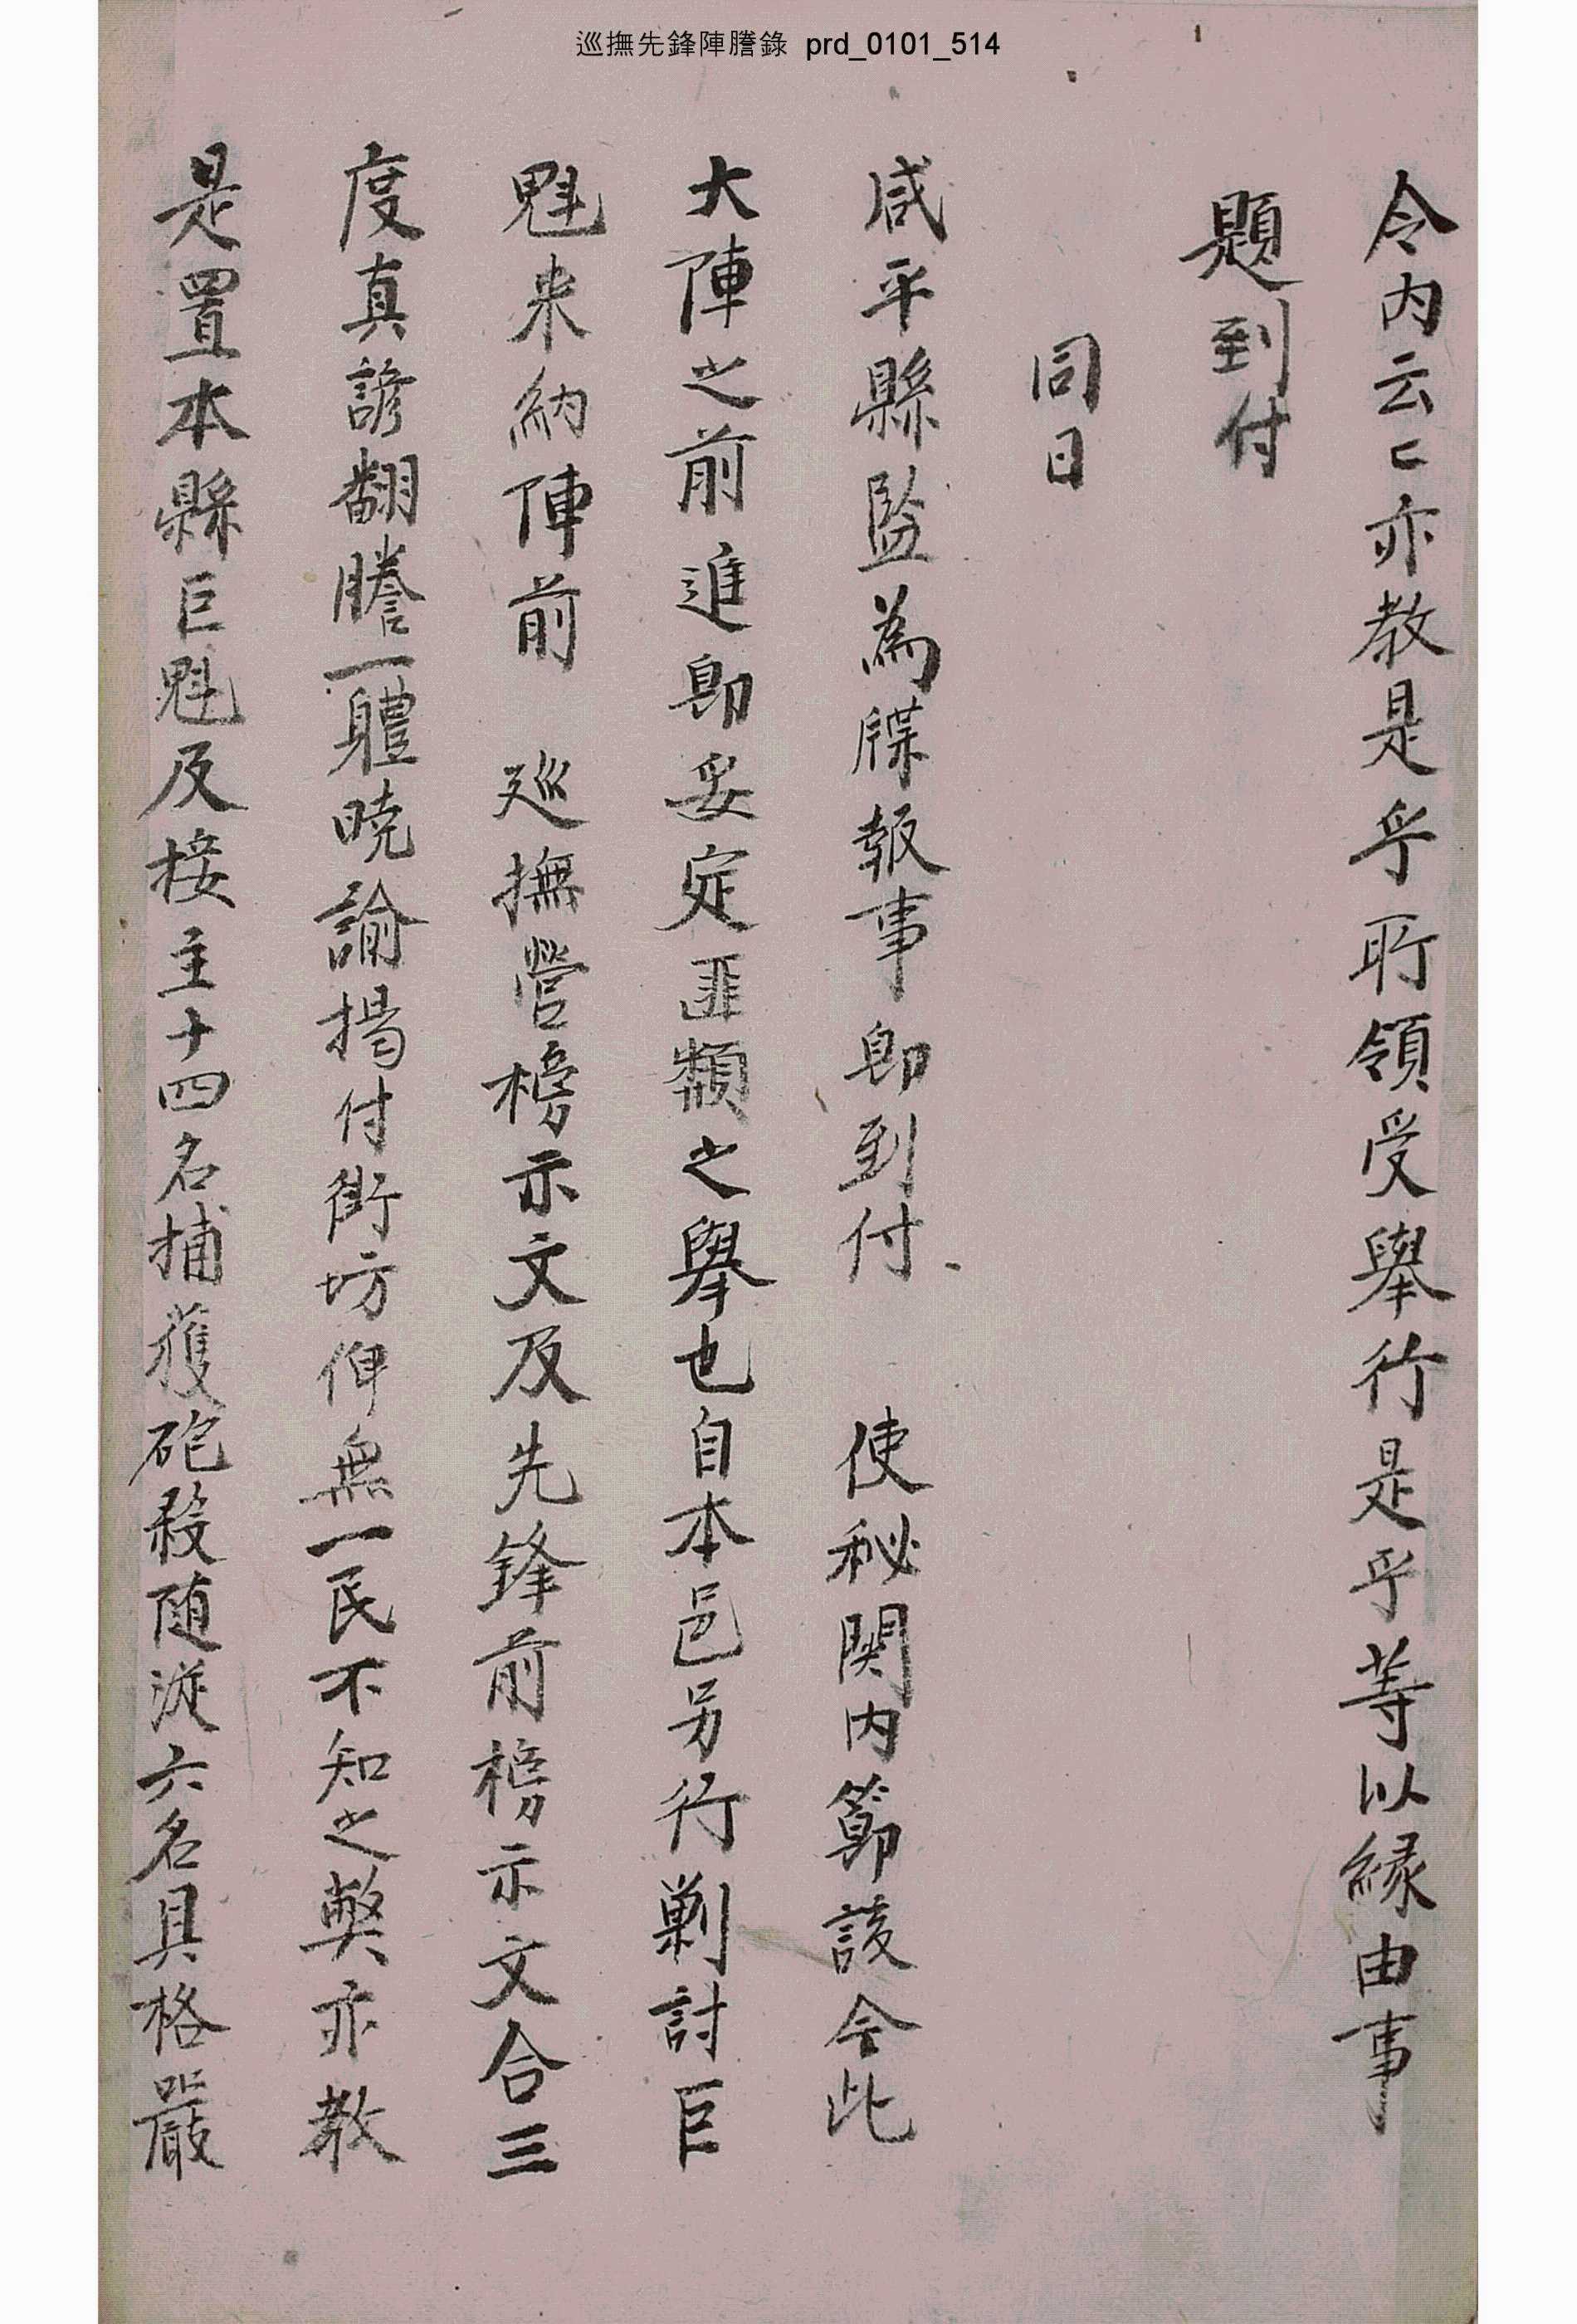 巡撫先鋒陣謄錄 prd_0101_514
令內云〻亦敎是乎所領受擧行是乎等以緣由事
題到付
同日
咸平縣監為牒報事卽到付 使秘関內節該今此
大陣之前進卽妥定匪類之擧也自本邑另行剿討巨
魁来納陣前 巡撫營榜示文及先鋒前榜示文合三
度真諺翻謄一軆曉諭揭付街坊俾無一民不知之獘亦敎
是置本縣巨魁及接主十四名捕獲砲殺随従六名具格嚴